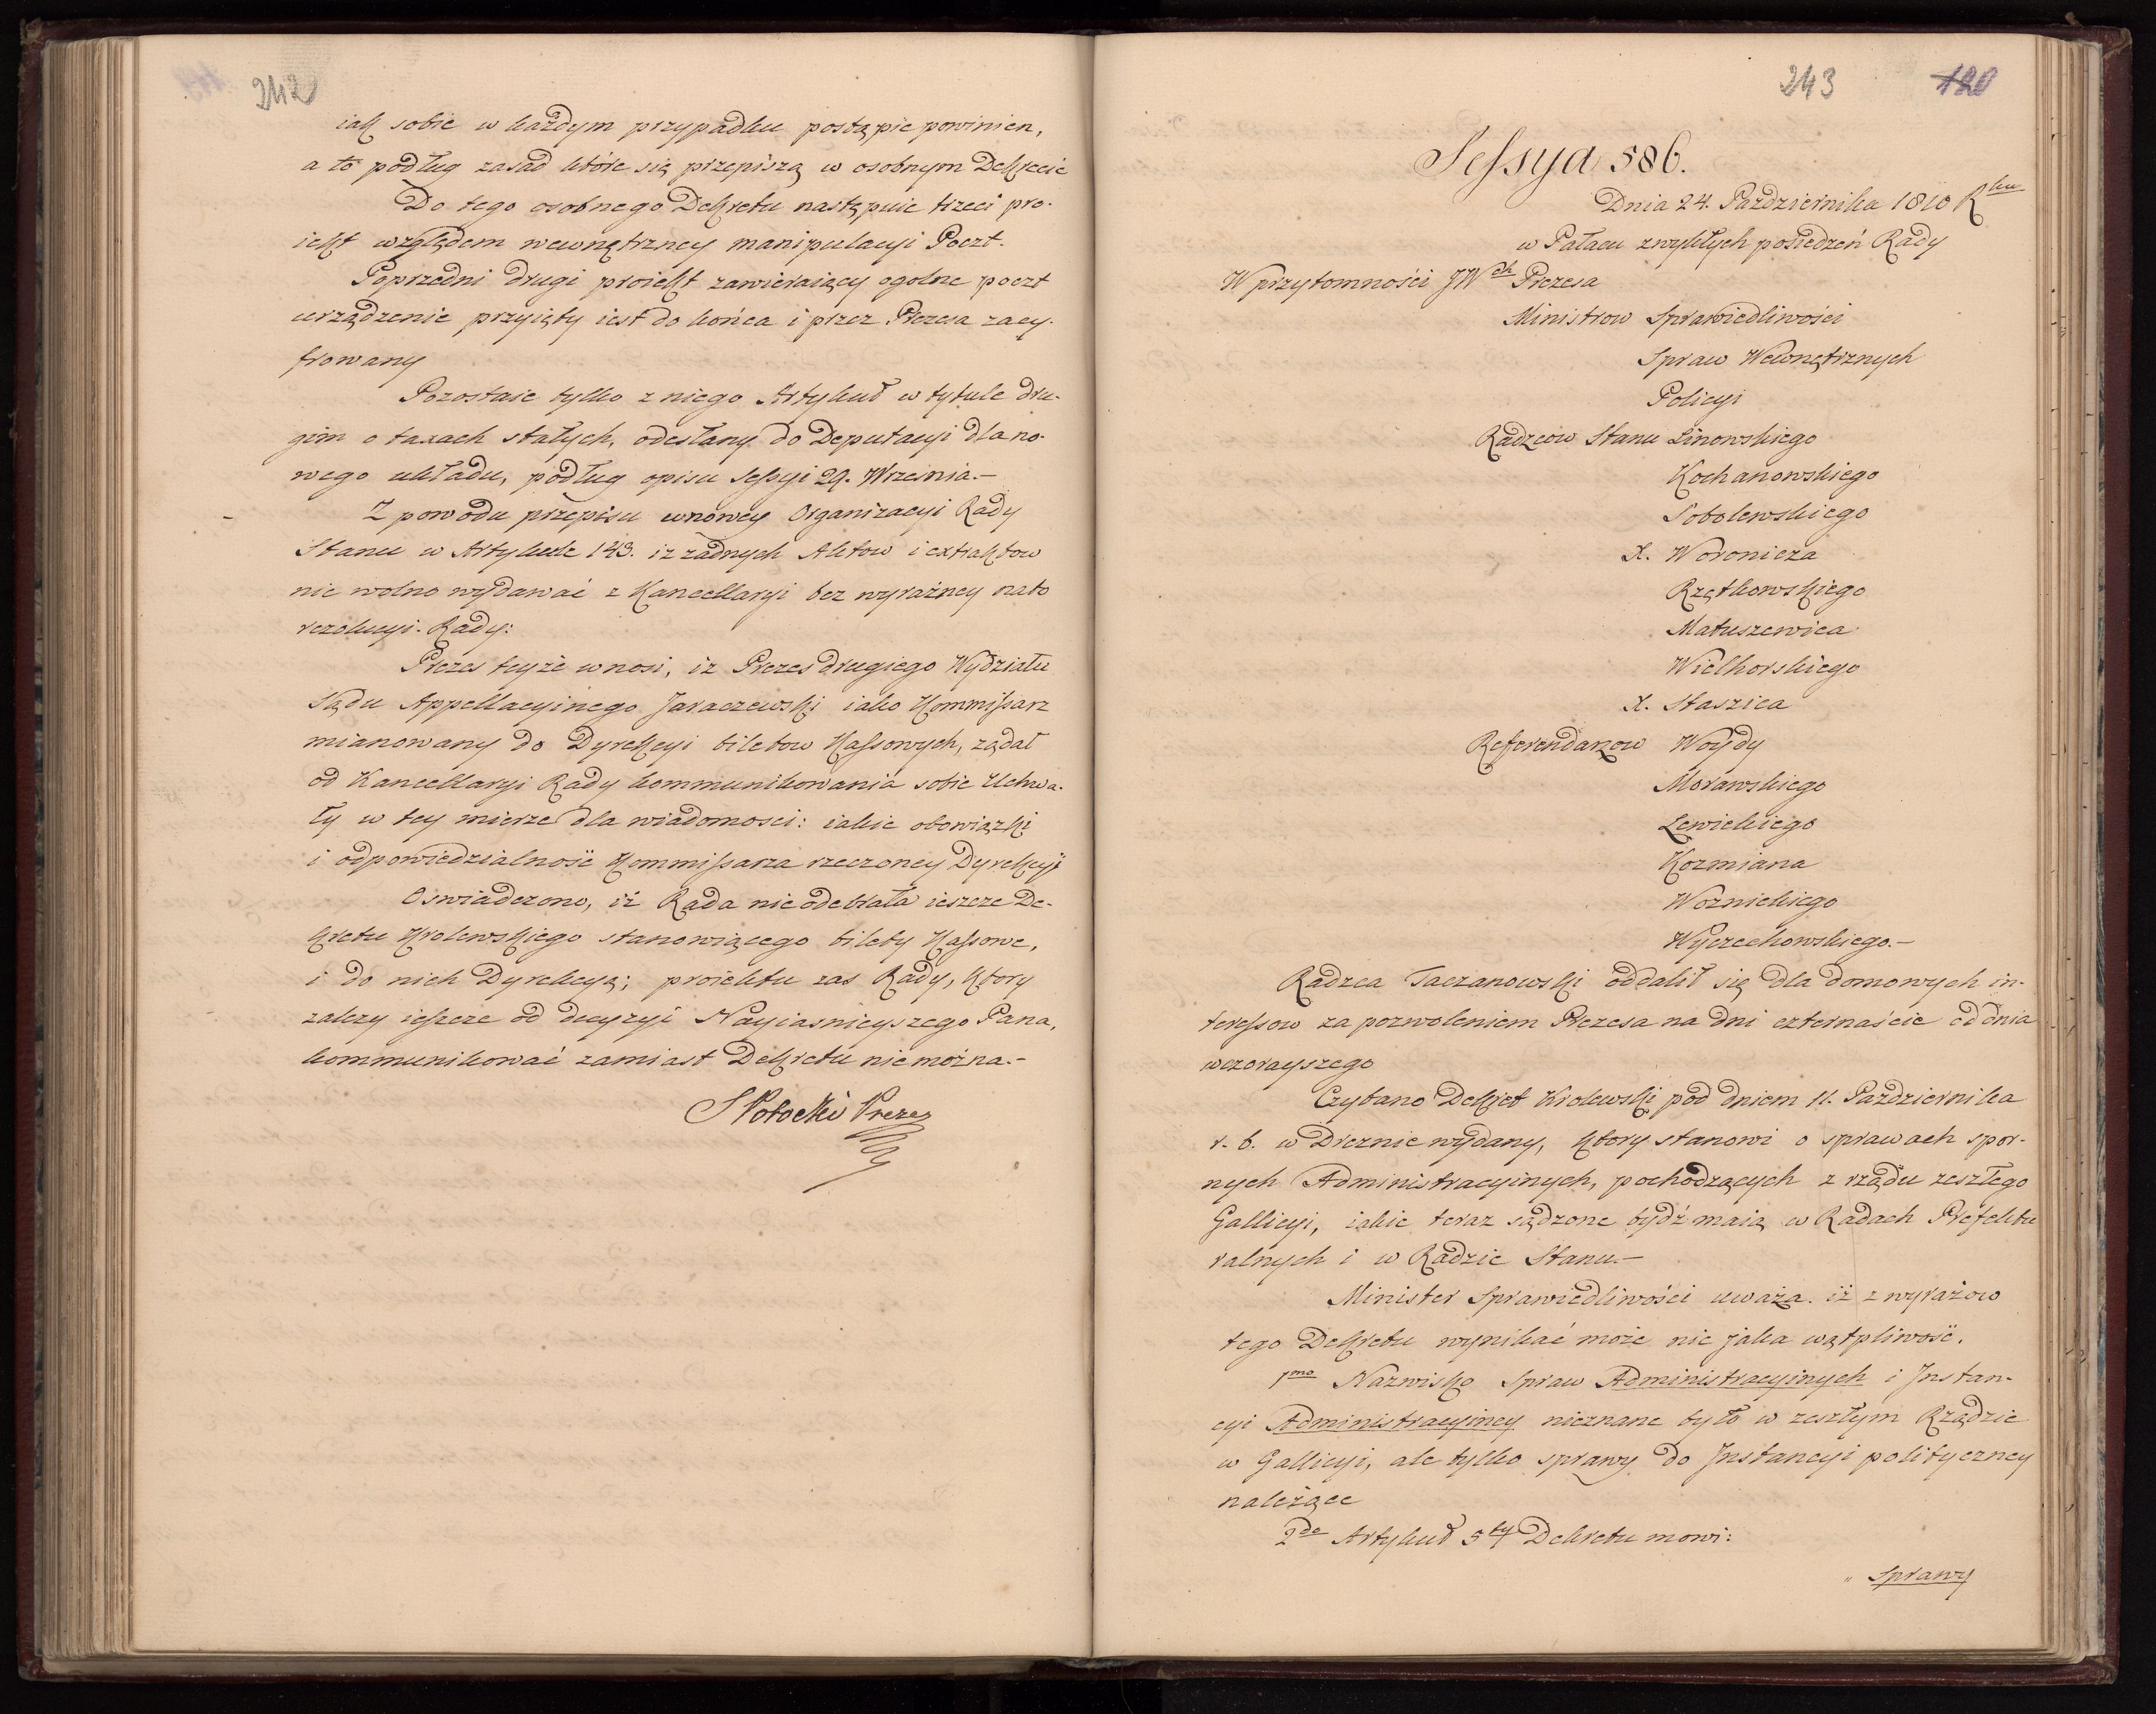 242
iak sobie w każdym przypadku postąpic powinien,
a to podług zasad które się przepiszą w osobnym Dekrecie
Do tego osobnego Dekretu następuie trzeci pro-
iekt względem wewnętrzney manipulacyi Poczt.
Poprzedni drugi proiekt zawieraiący ogolne poczt
urządzenie przyięty iest do końca i przez Prezesa zacy-
frowany
Pozostaie tylko z niego Artykuł w tytule dru-
gim o taxach stałych, odesłany do Deputacyi dla no-
wego układu, podług opisu Sessyi 29. Wrzesnia.-
Z powodu przepisu w nowey Organizacyi Rady
Stanu w Artykule 143. iz zadnych Aktow i extraktow
nie wolno wydawać z Kancellaryi bez wyrażney na to
rezolucyi. Rady:
Prezes teyże wnosi, iz Prezes drugiego Wydziału
Sądu Appellacyinego Jaraczewski iako Kommissarz
mianowany do Dyrekcyi biletow Kassowych, ządał
od Kancellaryi Rady kommunikowania sobie Uchwa-
ły w tey mierze dla wiadomosci: iakie obowiązki
i odpowiedzialność Kommissarza rzeczoney Dyrekcyi
Oswiadczono, iż Rada nie odebrała ieszcze De-
kretu Krolewskiego stanowiącego bilety Kassowe,
i do nich Dyrekcyą; proiektu zas Rady, ktory
zalezy ieszcze od decyzyi Nayiasnieyszego Pana,
kommunikować zamiast Dekretu nie można.-
S Potocki Prezes
243 120
Sessya 586.
Dnia 24. Pazdziernika 1810 Rku
w Pałacu zwykłych posiedzeń Rady
W przytomności JWch Prezesa
Ministrow Sprawiedliwości
Spraw Wewnętrznych
Policyi
Radzcow Stanu Linowskiego
Kochanowskiego
Sobolewskiego
X. Woronicza
Rzętkowskiego
Matuszewica
Wielhorskiego
X. Staszica
Referendarzow Woydy
Morawskiego
Lewickiego
Kozmiana
Woznickiego
Wyczechowskiego.-
Radzca Taczanowski oddalił się dla domowych in-
teressow za pozwoleniem Prezesa na dni czternaście od dnia
wczorayszego
Czytano Dekret Krolewski pod dniem 11. Pazdziernika
r. b. w Dreznie wydany, ktory stanowi o sprawach spor-
nych Administracyinych, pochodzących z rządu zeszłego
Gallicyi, iakie teraz sądzone bydź maią w Radach Prefektu
ralnych i w Radzie Stanu.-
Minister Sprawiedliwości uważa. iż z wyrażow
tego Dekretu wynikać może nie jaka wątpliwość.
1mo Nazwisko Spraw Administracyinych i Instan-
cyi Administracyiney nieznane było w zeszłym Rządzie
w Gallicyi, ale tylko sprawy do Instancyi polityczney
należące
2do Artykuł 5ty Dekretu mowi:
" Sprawy